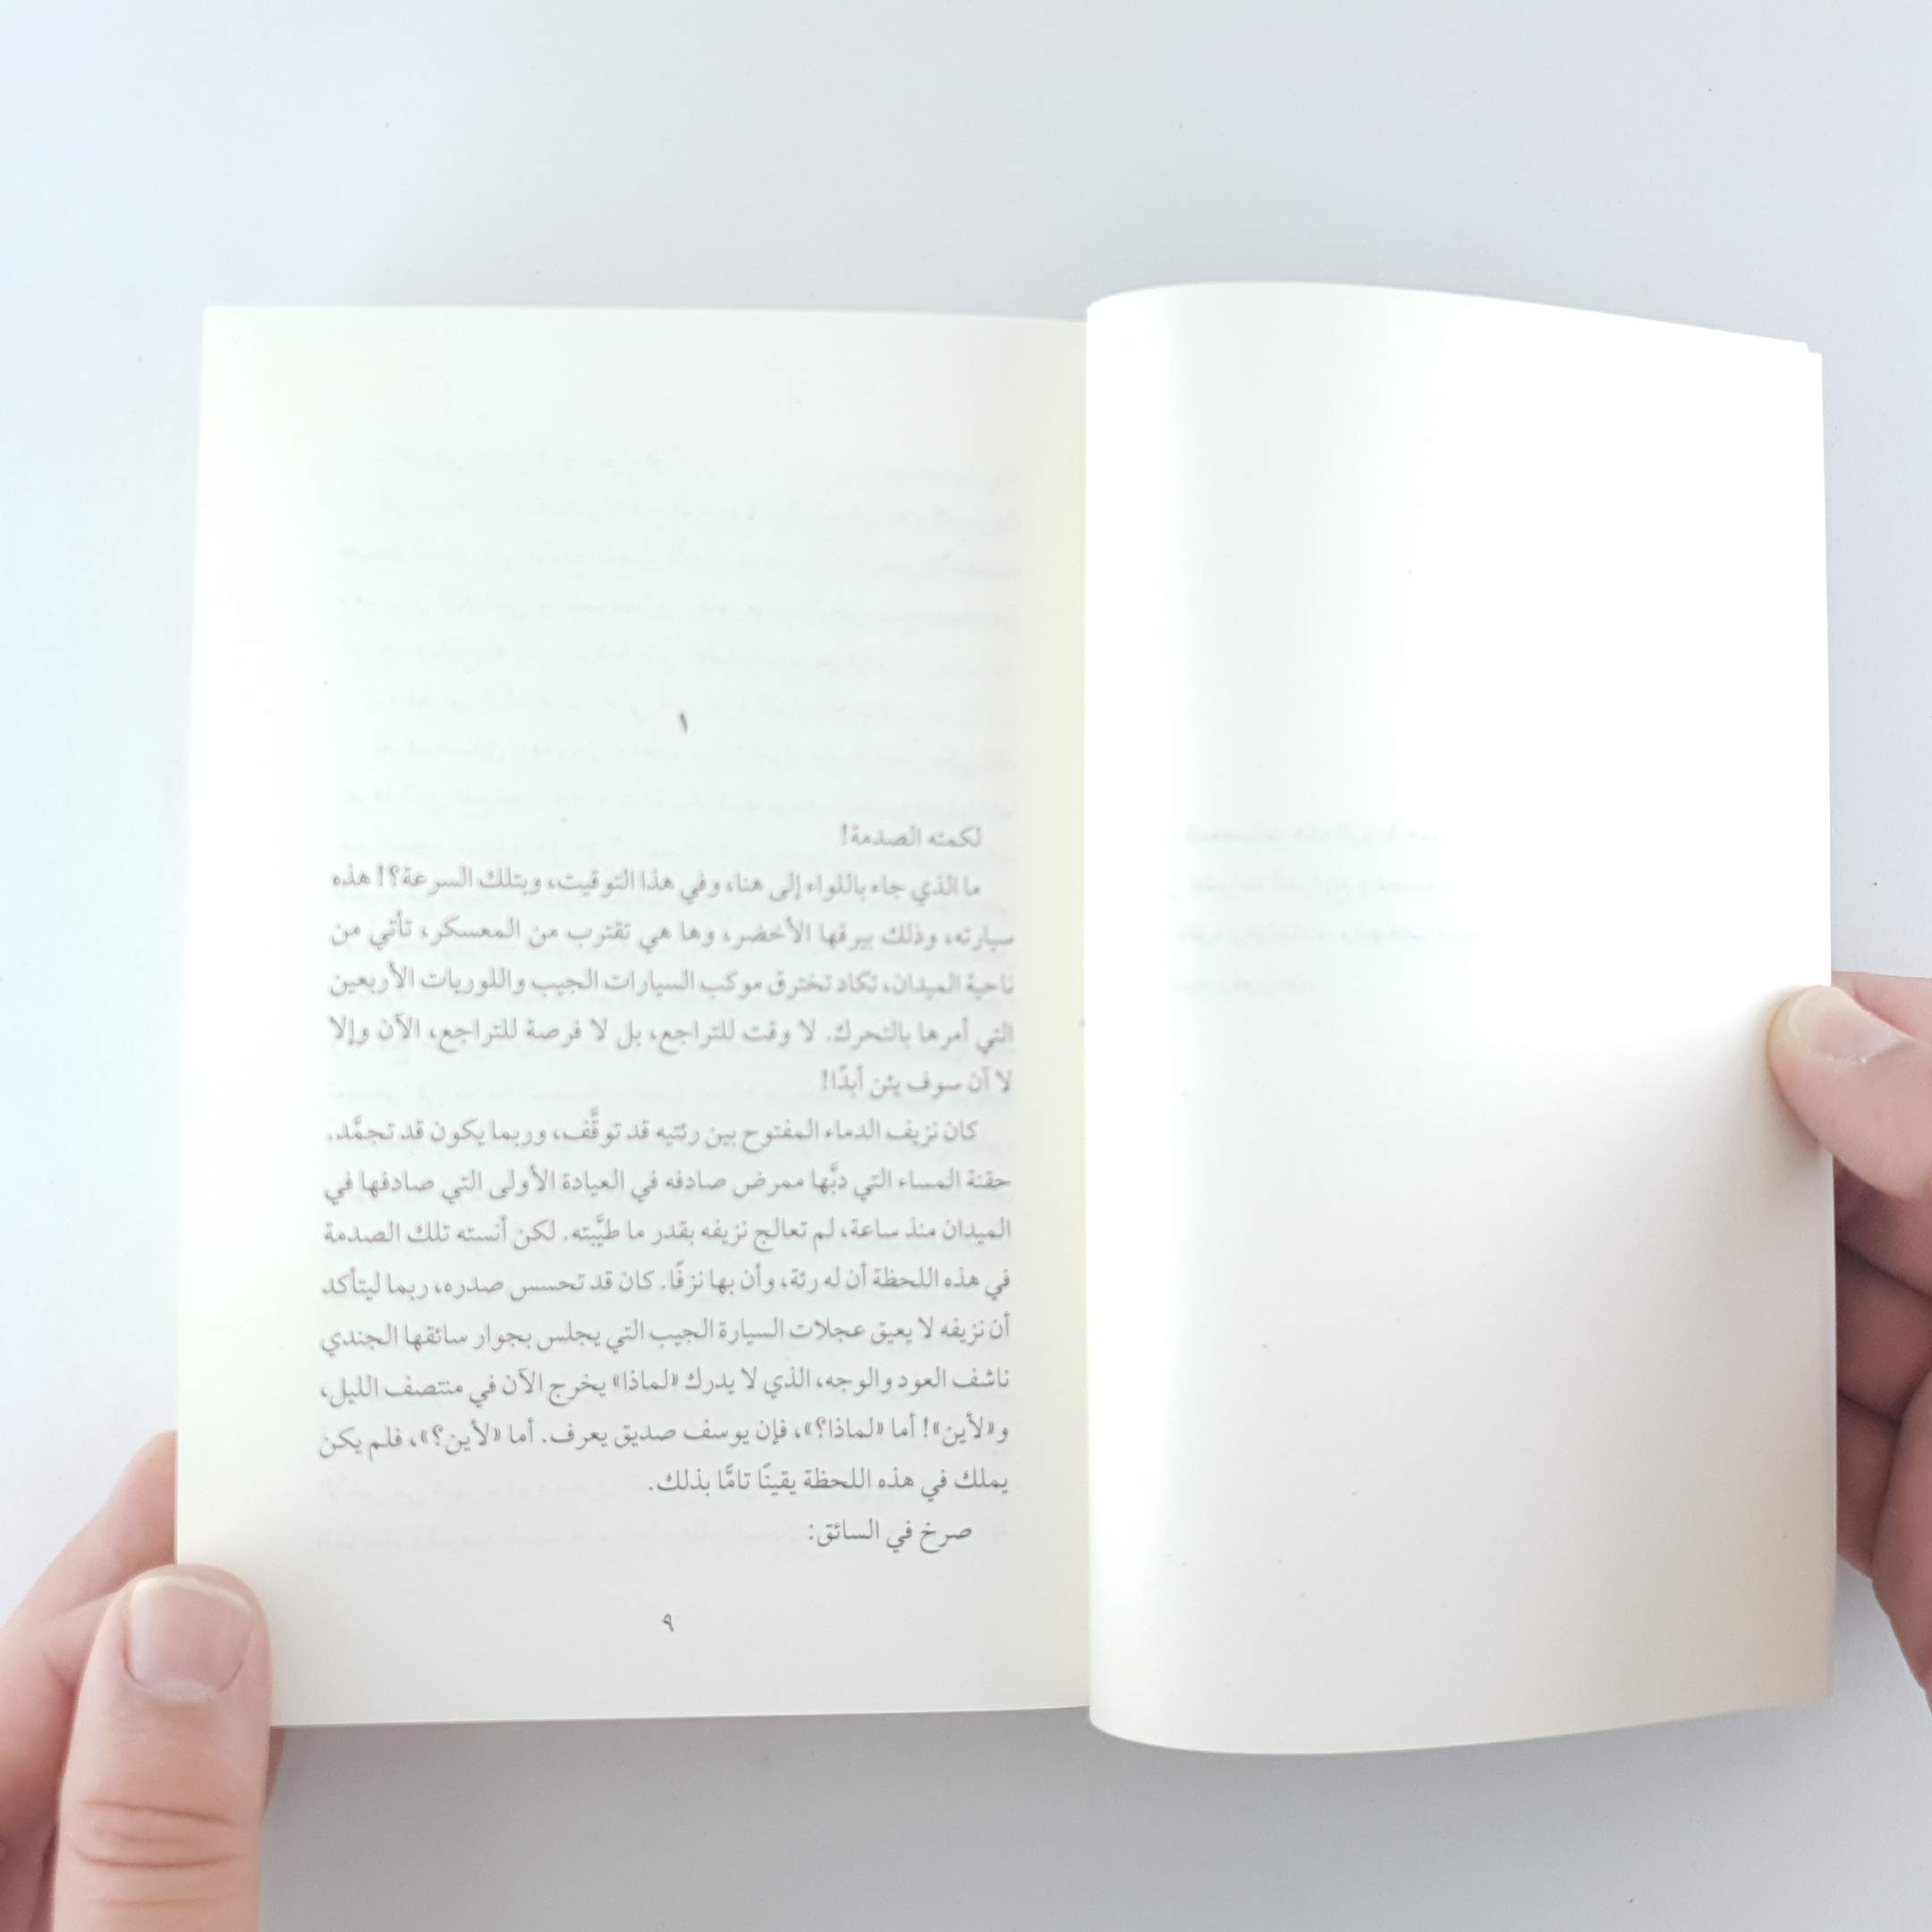 ١
لكمته الصدمة!
ما الذي جاء باللواء إلى هنا، وفي هذا التوقيت، وبتلك السرعة؟! هذه
سيارته، وذلك بيرقها الأخضر، وها هي تقترب من المعسكر، تأتي من
ناحية الميدان، تكاد تخترق موكب السيارات الجيب واللوريات الأربعين
التي أمرها بالتحرك. لا وقت للتراجع، بل لا فرصة للتراجع، الآن وإلا
لا آن سوف يئن أبدًا!
كان نزيف الدماء المفتوح بين رئتيه قد توقَّف، وربما يكون قد تجمَّد.
حقنة المساء التي دبَّها ممرض صادفه في العيادة الأولى التي صادفها في
الميدان منذ ساعة، لم تعالج نزيفه بقدر ما طيَّبته. لكن أنسته تلك الصدمة
في هذه اللحظة أن له رئة، وأن بها نزفًا. كان قد تحسس صدره، ربما ليتأكد
أن نزيفه لا يعيق عجلات السيارة الجيب التي يجلس بجوار سائقها الجندي
ناشف العود والوجه، الذي لا يدرك «لماذا» يخرج الآن في منتصف الليل،
و«لأين»! أما «لماذا؟»، فإن يوسف صديق يعرف. أما «لأين؟»، فلم يكن
يملك في هذه اللحظة يقينًا تامًّا بذلك.
صرخ في السائق:
٩